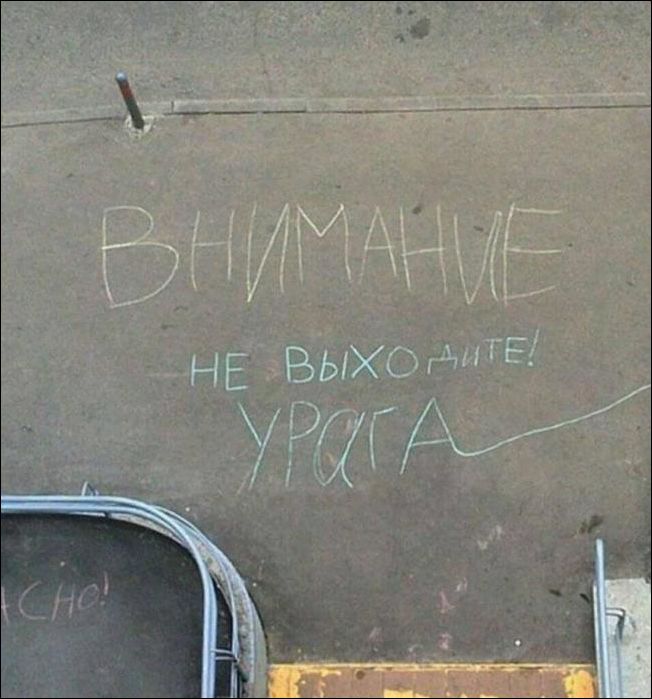 ВНИМАНИЕ
НЕ ВЫХОДИТЕ!
УРАГА
АСНО!